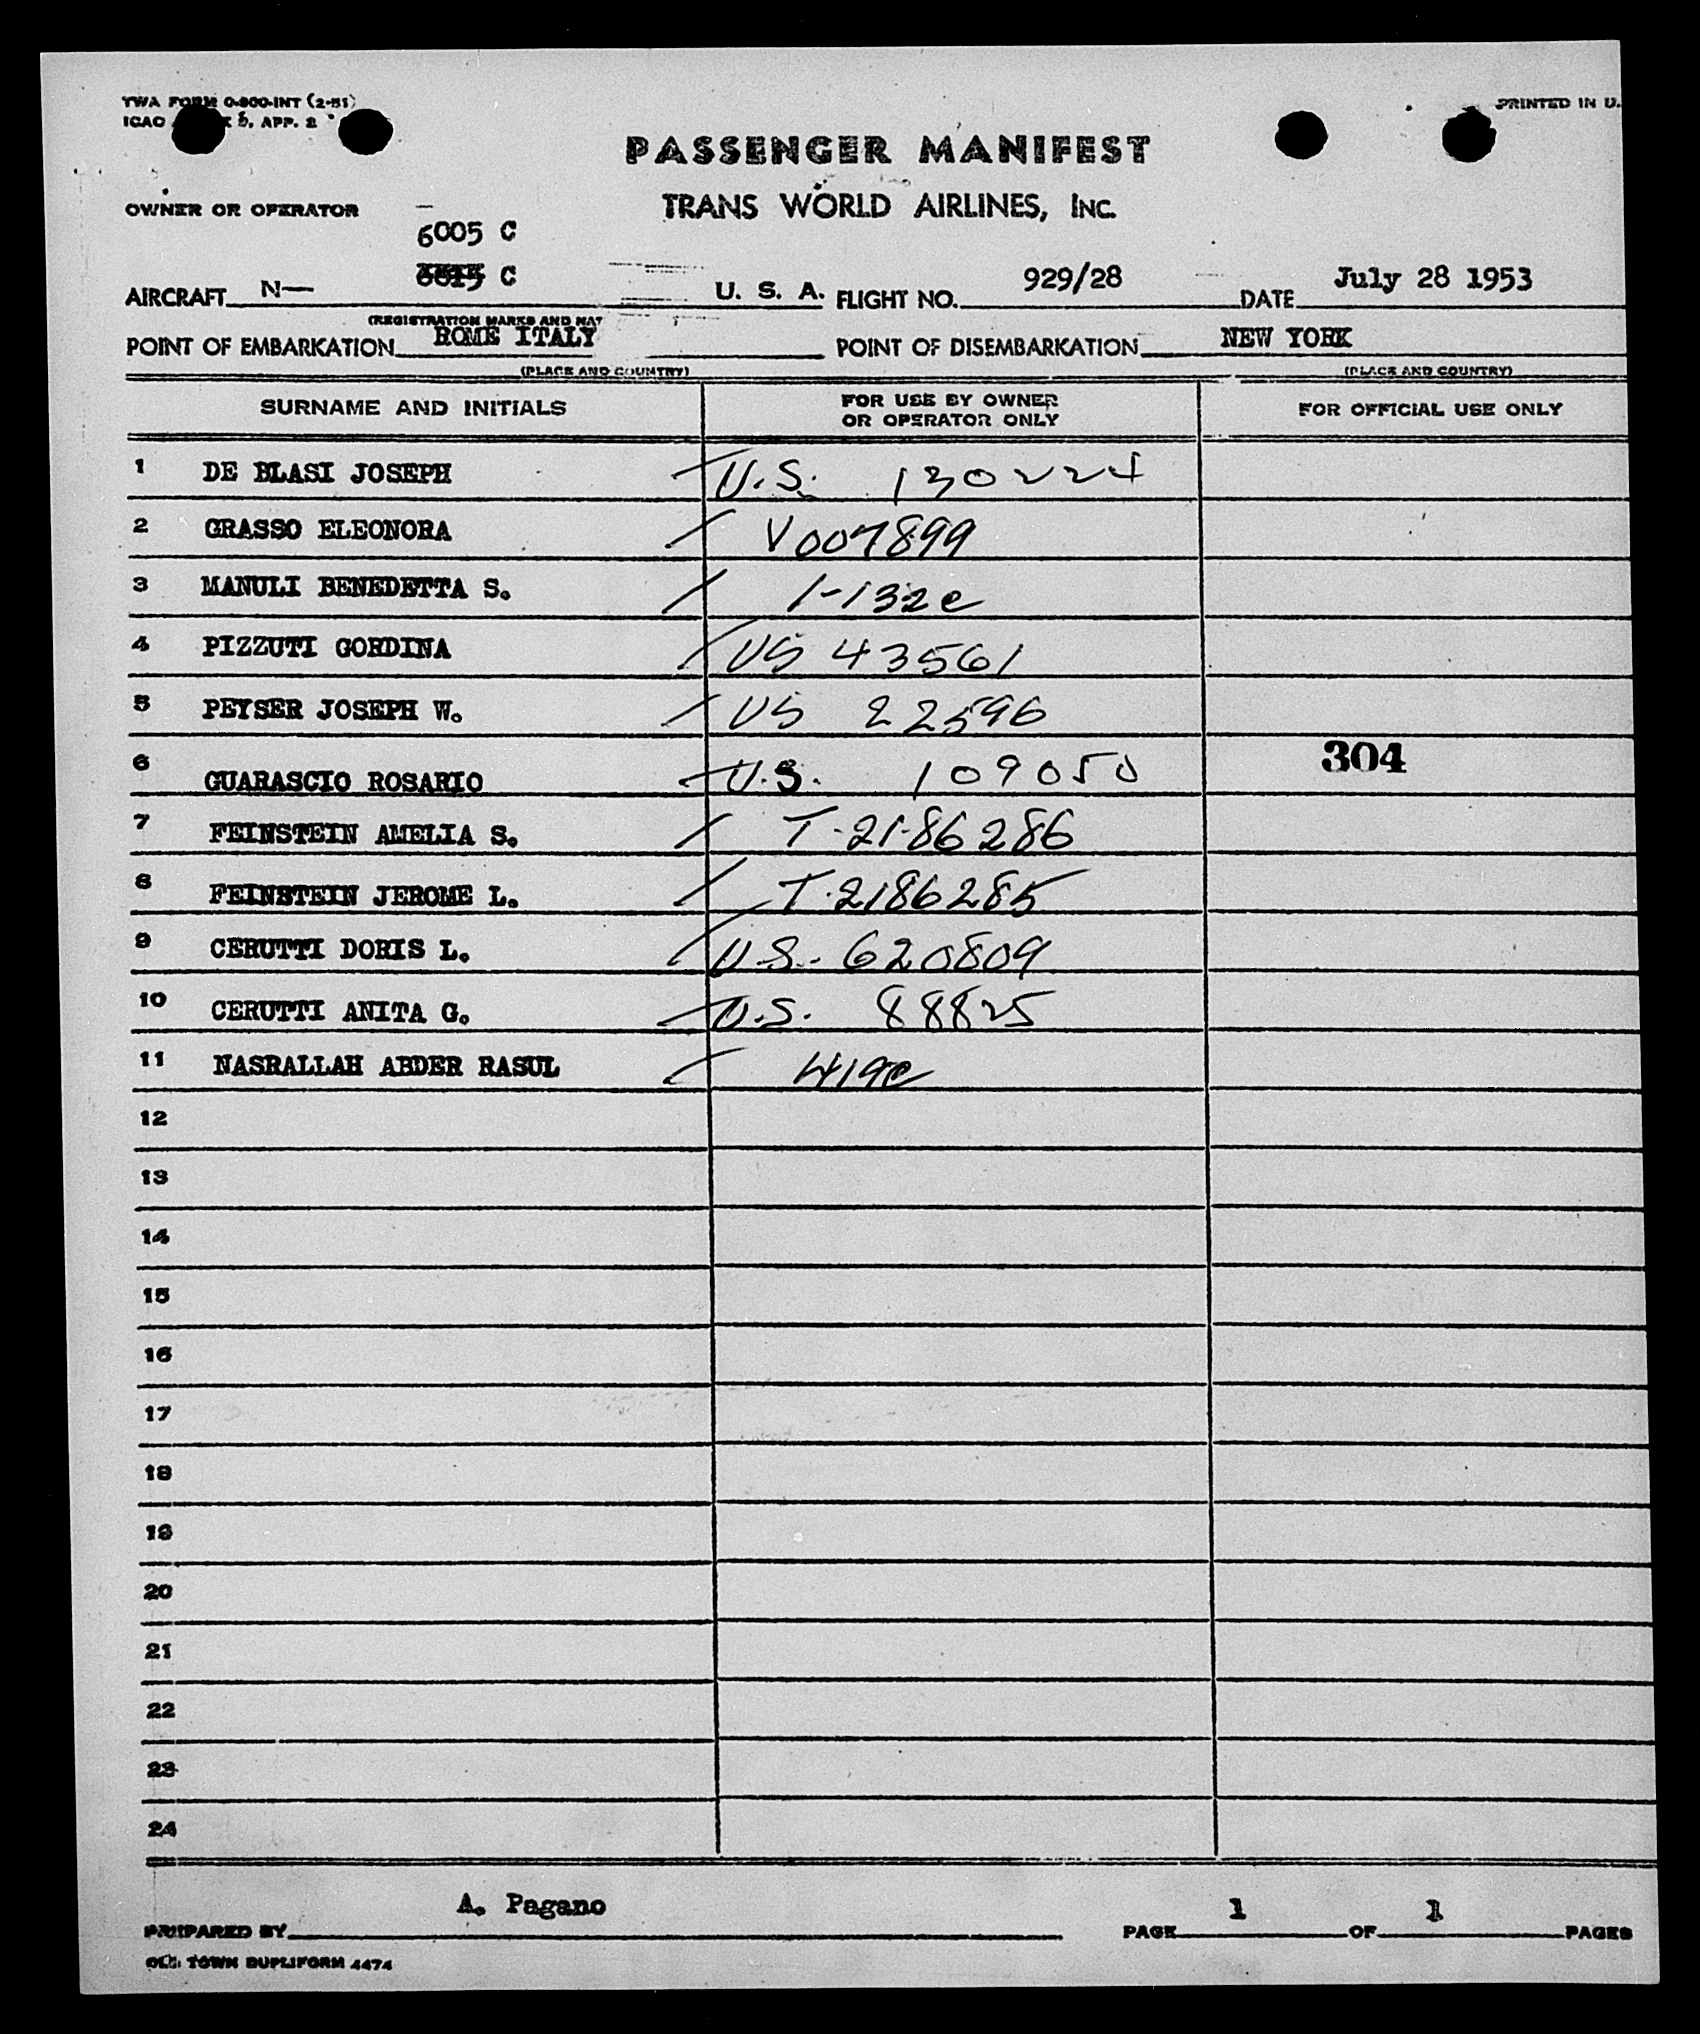 TWA FORM 0-800-INT (2-51)
ICAO X 5, APP. 2
PRINTED IN U.
PASSENGER MANIFEST
OWNER OR OPERATOR
TRANS WORLD AIRLINES, INC.
6005 C
AIRCRAFT N— 6615 C U. S. A. FLIGHT NO. 929/28 DATE July 28 1953
(REGISTRATION MARKS AND NAT
POINT OF EMBARKATION ROME ITALY POINT OF DISEMBARKATION NEW YORK
(PLACE AND COUNTRY) (PLACE AND COUNTRY)
SURNAME AND INITIALS FOR USE BY OWNER OR OPERATOR ONLY FOR OFFICIAL USE ONLY
1 DE BLASI JOSEPH U.S. 130224
2 GRASSO ELEONORA V007899
3 MANULI BENEDETTA S. 1-132e
4 PIZZUTI GORDINA US 43561
5 PEYSER JOSEPH W. US 22596
6 GUARASCIO ROSARIO U.S. 109050 304
7 FEINSTEIN AMELIA S. T-2186286
8 FEINSTEIN JEROME L. T-2186285
9 CERUTTI DORIS L. U.S. 620809
10 CERUTTI ANITA G. U.S. 88825
11 NASRALLAH ABDER RASUL 419e
12
13
14
15
16
17
18
19
20
21
22
23
24
PREPARED BY A. Pagano PAGE 1 OF 1 PAGES
OLD TOWN DUPLIFORM 4474